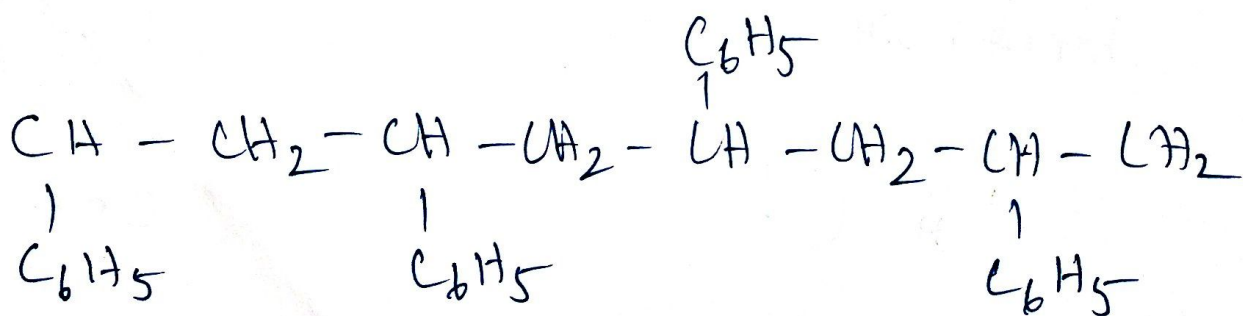 C6H5
CH - CH2 - CH - CH2 - CH - CH2 - CH - CH2
C6H5 C6H5 C6H5